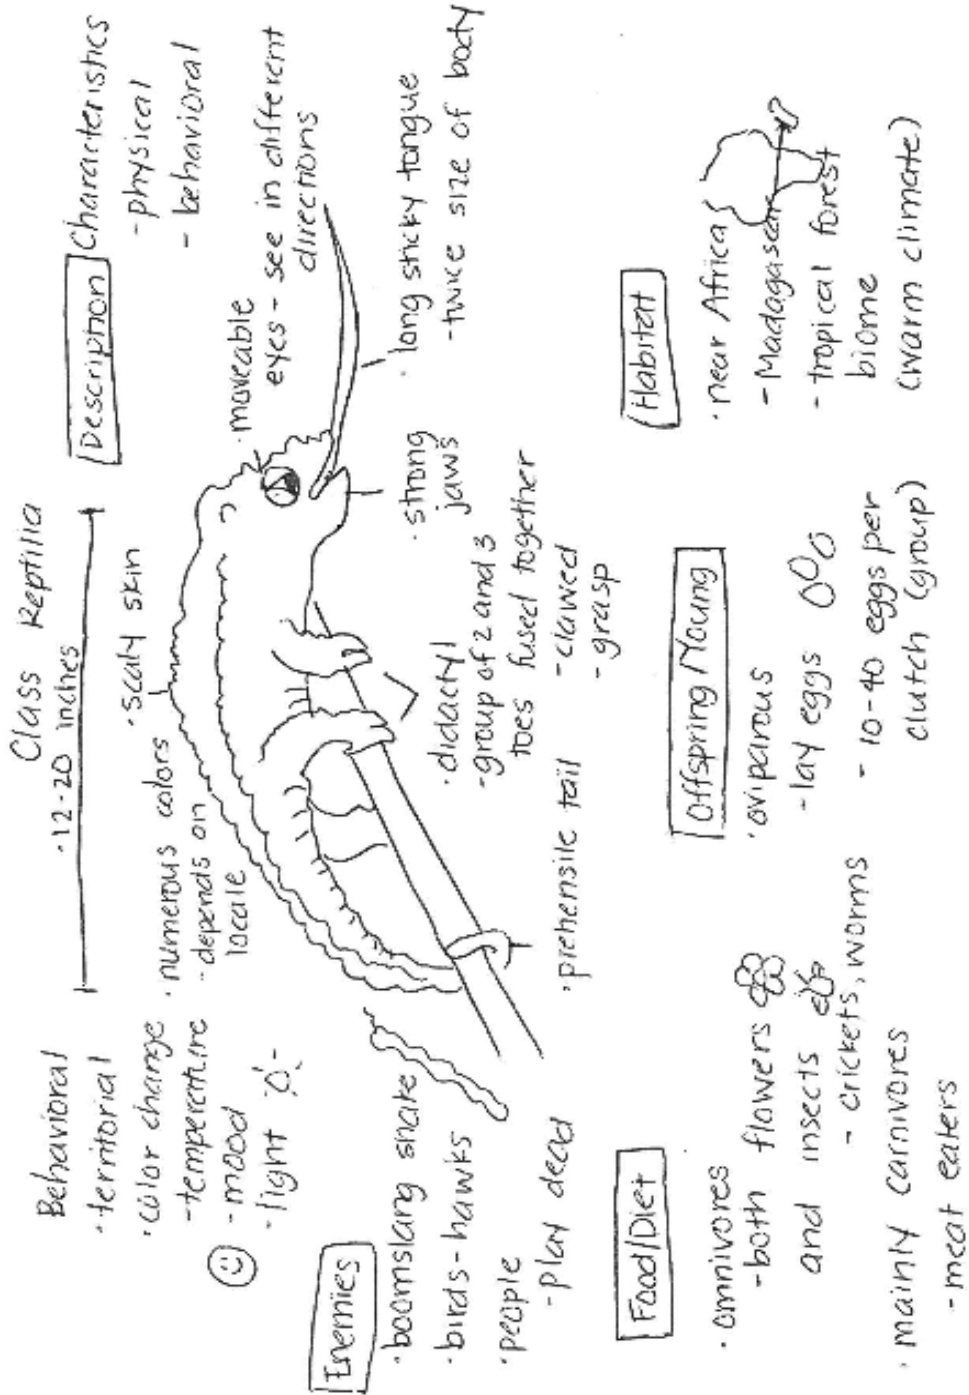 Class Reptilia
· 12-20 inches
Behavioral
· territorial
· color change
- temperature
- mood
- light
· numerous colors
- depends on
locale
· scaly skin
Description
Characteristics
- physical
- behavioral
· moveable
eyes - see in different
directions
· long sticky tongue
- twice size of body
· strong
jaws
· didactyl
- group of 2 and 3
toes fused together
- clawed
- grasp
· prehensile tail
Enemies
· boomslang snake
· birds - hawks
· people
- play dead
Food/Diet
· omnivores
- both flowers
and insects
- crickets, worms
· mainly carnivores
- meat eaters
Offspring/Young
· oviparous
- lay eggs
- 10-40 eggs per
clutch (group)
Habitat
· near Africa
- Madagascar
- tropical forest
biome
(warm climate)